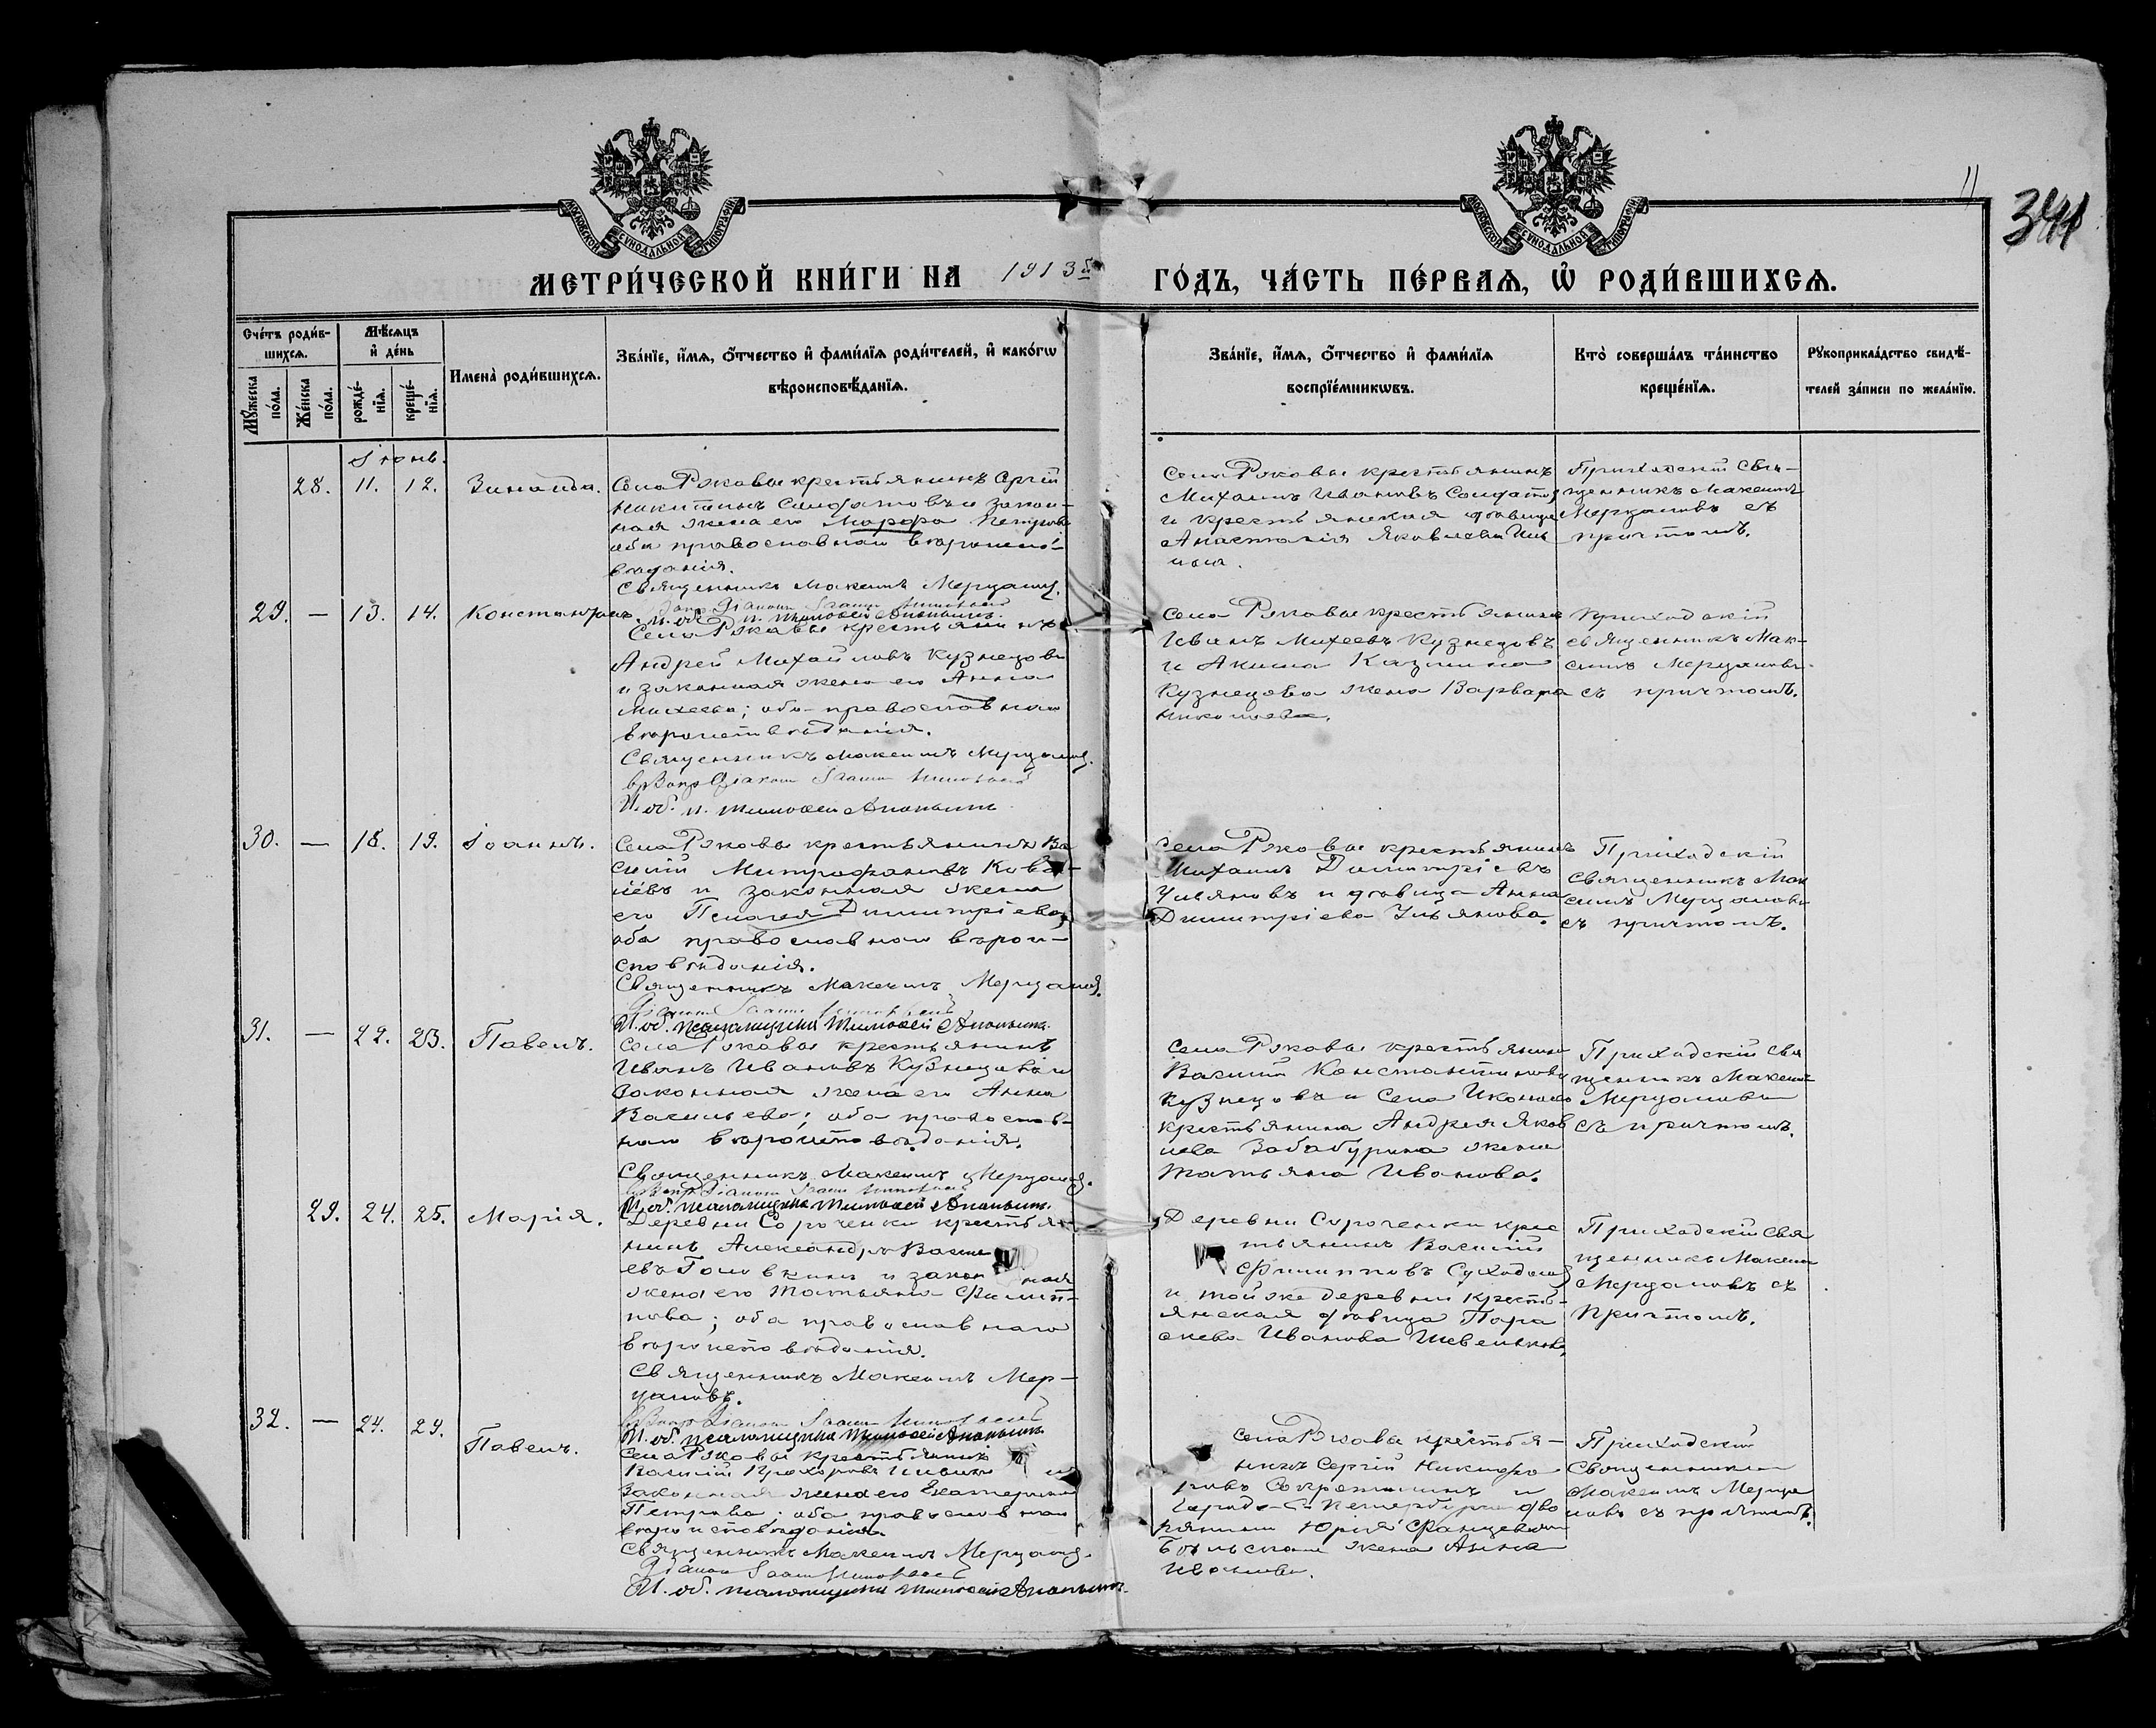 11
344
МОСКОВСКОЙ СѴНОДАЛЬНОЙ ТИПОГРАФІИ
МОСКОВСКОЙ СѴНОДАЛЬНОЙ ТИПОГРАФІИ
МЕТРИ́ЧЕСКОЙ КНИ́ГИ НА 1913й ГО́ДЪ, ЧА́СТЬ ПЕ́РВАѦ, Ѽ РОДИ́ВШИХСѦ.
Сче́тъ роди́в-
шихсѧ.
Мꙋ́жеска по́ла.
Же́нска по́ла.
Мѣ́сѧцъ
и҆ де́нь
рожде́-
нїѧ.
креще́-
нїѧ.
И҆мена̀ роди́вшихсѧ.
Зва́нїе, и҆́мѧ, ѻ҆́тчество и҆ фами́лїѧ роди́телей, и҆ како́гѡ
вѣроисповѣ́данїѧ.
Зва́нїе, и҆́мѧ, ѻ҆́тчество и҆ фами́лїѧ
воспрїе́мникѡвъ.
Кто̀ соверша́лъ та́инство
креще́нїѧ.
Рꙋкоприкла́дство свидѣ́-
телей за́писи по жела́нїю.
Іюнь.
28. 11. 12. Зинаида.
Села Ржавы крестьянинъ Сергій
Никитинъ Солдатовъ и закон-
ная жена его Марфа Петрова
оба православнаго вѣроиспо-
вѣданія.
Священникъ Максимъ Мерцаловъ.
Діаконъ Іоаннъ
И. об. п. Тимоѳей Ананьинъ.
Села Ржавы крестьянинъ
Михаилъ Ивановъ Солдатовъ
и крестьянская дѣвица
Анастасія Яковлева Иль
ина.
Приходскій Свя-
щенникъ Максимъ
Мерцаловъ съ
причтомъ.
29. — 13. 14. Константинъ.
Села Ржавы крестьянинъ
Андрей Михайловъ Кузнецовъ
и законная жена его Анна
Михеева; оба православнаго
вѣроисповѣданія.
Священникъ Максимъ Мерцаловъ.
Діаконъ Іоаннъ
И. об. п. Тимоѳей Ананьинъ
Села Ржавы крестьянинъ
Иванъ Михеевъ Кузнецовъ
и Акима Казмина
Кузнецова жена Варвара
Николаева.
Приходскій
священникъ Мак-
симъ Мерцаловъ
съ причтомъ.
30. — 18. 19. Іоаннъ.
Села Ржавы крестьянинъ Ва
силій Митрофановъ Кова-
лёвъ и законная жена
его Пелагея Димитріева,
оба православнаго вѣрои-
сповѣданія.
Священникъ Максимъ Мерцаловъ.
Діаконъ Іоаннъ
И. об. псаломщика Тимоѳей Ананьинъ.
Села Ржавы крестьянинъ
Михаилъ Димитріевъ
Ульяновъ и дѣвица Анна
Димитріева Ульянова.
Приходскій
священникъ Мак
симъ Мерцаловъ
съ причтомъ.
31. — 22. 23. Павелъ.
Села Ржавы крестьянинъ
Иванъ Ивановъ Кузнецовъ и
законная жена его Анна
Васильева; оба православ-
наго вѣроисповѣданія.
Священникъ Максимъ Мерцаловъ.
Діаконъ Іоаннъ
И. об. псаломщика Тимоѳей Ананьинъ.
Села Ржавы крестьянинъ
Василій Константиновъ
Кузнецовъ и села
крестьянина Андрея Яков
лева Забабурина жена
Татьяна Иванова.
Приходскій свя
щенникъ Максимъ
Мерцаловъ
съ причтомъ.
29. 24. 25. Марія.
Деревни Сороченки крестья
нинъ Александръ
евъ Головкинъ и закон ная
жена его Татьяна Филип-
пова; оба православнаго
вѣроисповѣданія.
Священникъ Максимъ Мер-
цаловъ.
Діаконъ Іоаннъ
И. об. псаломщика Тимоѳей Ананьинъ
Деревни Сороченки крес
тьянинъ Василій
Филипповъ
и той же деревни кресть-
янская дѣвица Пара
скева Иванова
Приходскій Свя
щенникъ Максимъ
Мерцаловъ съ
причтомъ.
32. — 24. 29. Павелъ.
Села Ржавы крестьянинъ
Василій Прохоровъ и
законная жена его Екатерина
Петрова; оба православнаго
вѣроисповѣданія.
Священникъ Максимъ Мерцаловъ.
Діаконъ Іоаннъ
И. об. псаломщика Тимоѳей Ананьинъ.
Села Ржавы крестья-
нинъ Сергій Никифо
ровъ и
города С-Петербурга дво
рянина Юрія
жена Анна
Иванова.
Приходскій
Священникъ
Максимъ Мерца
ловъ съ причтомъ.